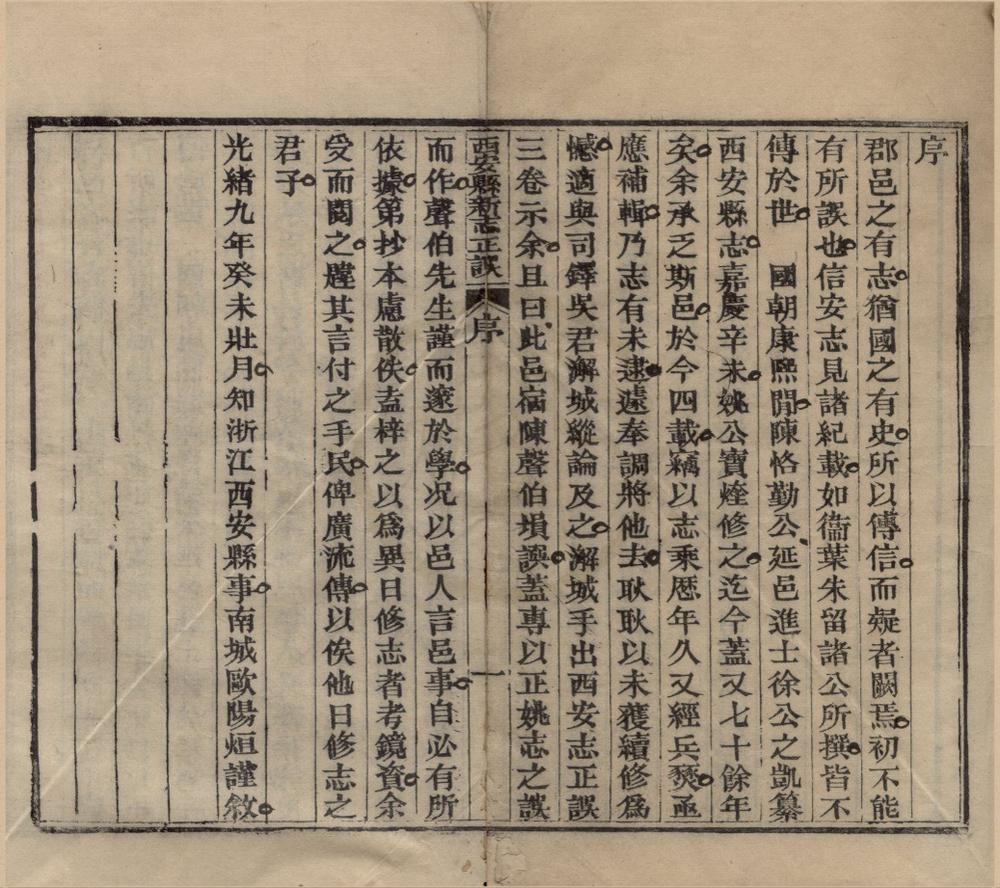 序
郡邑之有志猶國之有史所以傳信而疑者闕焉初不能
有所誤也信安志見諸紀載如衞葉朱留諸公所撰皆不
傳於世　國朝康熙間陳恪勤公延邑進士徐公之凱纂
西安縣志嘉慶辛未姚公寶煃修之迄今蓋又七十餘年
矣余承乏斯邑於今四載竊以志乘歷年久又經兵燹亟
應補輯乃志有未逮遽奉調將他去耿耿以未獲續修為
憾適與司鐸吳君澥城縱論及之澥城手出西安志正誤
三卷示余且曰此邑宿陳聲伯塤誤蓋專以正姚志之誤
西安縣新志正誤　序　一
而作聲伯先生謹而邃於學况以邑人言邑事自必有所
依據第抄本慮散佚盍梓之以為異日修志者考鏡資余
受而閱之韙其言付之手民俾廣流傳以俟他日修志之
君子
光緒九年癸未壯月知浙江西安縣事南城歐陽烜謹敘